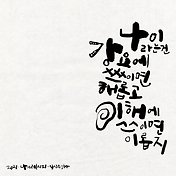 나이
라는건
강요에
쓰이면
해롭고
이해에
쓰이면
이롭지